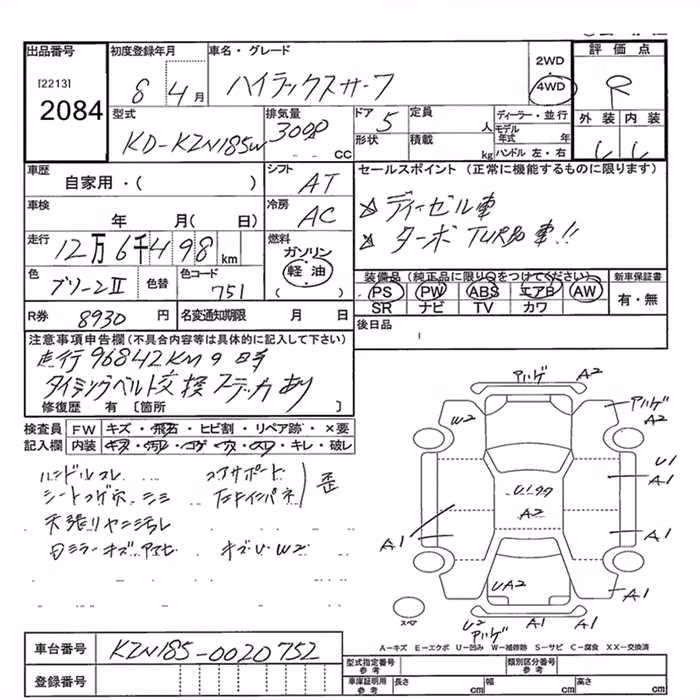 出品番号 初度登録年月 車名・グレード 2WD 評価点
[2213] 8 4月 ハイラックスサーフ 4WD R
2084 型式 排気量 ドア 定員 ディーラー・並行 外装 内装
KD-KZN185W 3000 CC 5 人 モデル年式 年
形状 積載 kg ハンドル 左・右
車歴 シフト セールスポイント (正常に機能するものに限ります)
自家用・( ) AT
車検 冷房 ☆ ディーゼル車
年 月( 日) AC ☆ ターボ TURBO車!!
走行 燃料
12万6千498km ガソリン
軽・油
( )
色 色替 色コード 装備品 (純正品に限り○をつけてください) 新車保証書
グリーンII 751 PS PW ABS エアB AW 有・無
SR ナビ TV カワ
R券 8930円 名変通知期限 月 日 後日品
注意事項申告欄(不具合内容等は具体的に記入して下さい)
走行96842KMの時
タイミングベルト交換ステッカあり
修復歴 有 〔箇所 〕
検査員 FW キズ・飛石・ヒビ割・リペア跡・×要
記入欄 内装 キズ・汚れ・コゲ・穴・スレ・キレ・破レ
ハンドルスレ コアサポート
シートコゲ穴 シミ 左右インパネ 歪
天張リヤニ汚レ
キズU W2
アハゲ A2
W2 アハゲ
A2
U1
A1
A2
A1 A1
UA2 A1
U2 A1 A1
アハゲ
スペア
A-キズ E-エクボ U-凹み W-補修跡 S-サビ C-腐食 XX-交換済
車台番号 KZN185-0020752
登録番号
型式指定番号 参考 類別区分番号 参考
車庫証明用 参考 長さ cm 幅 cm 高さ cm